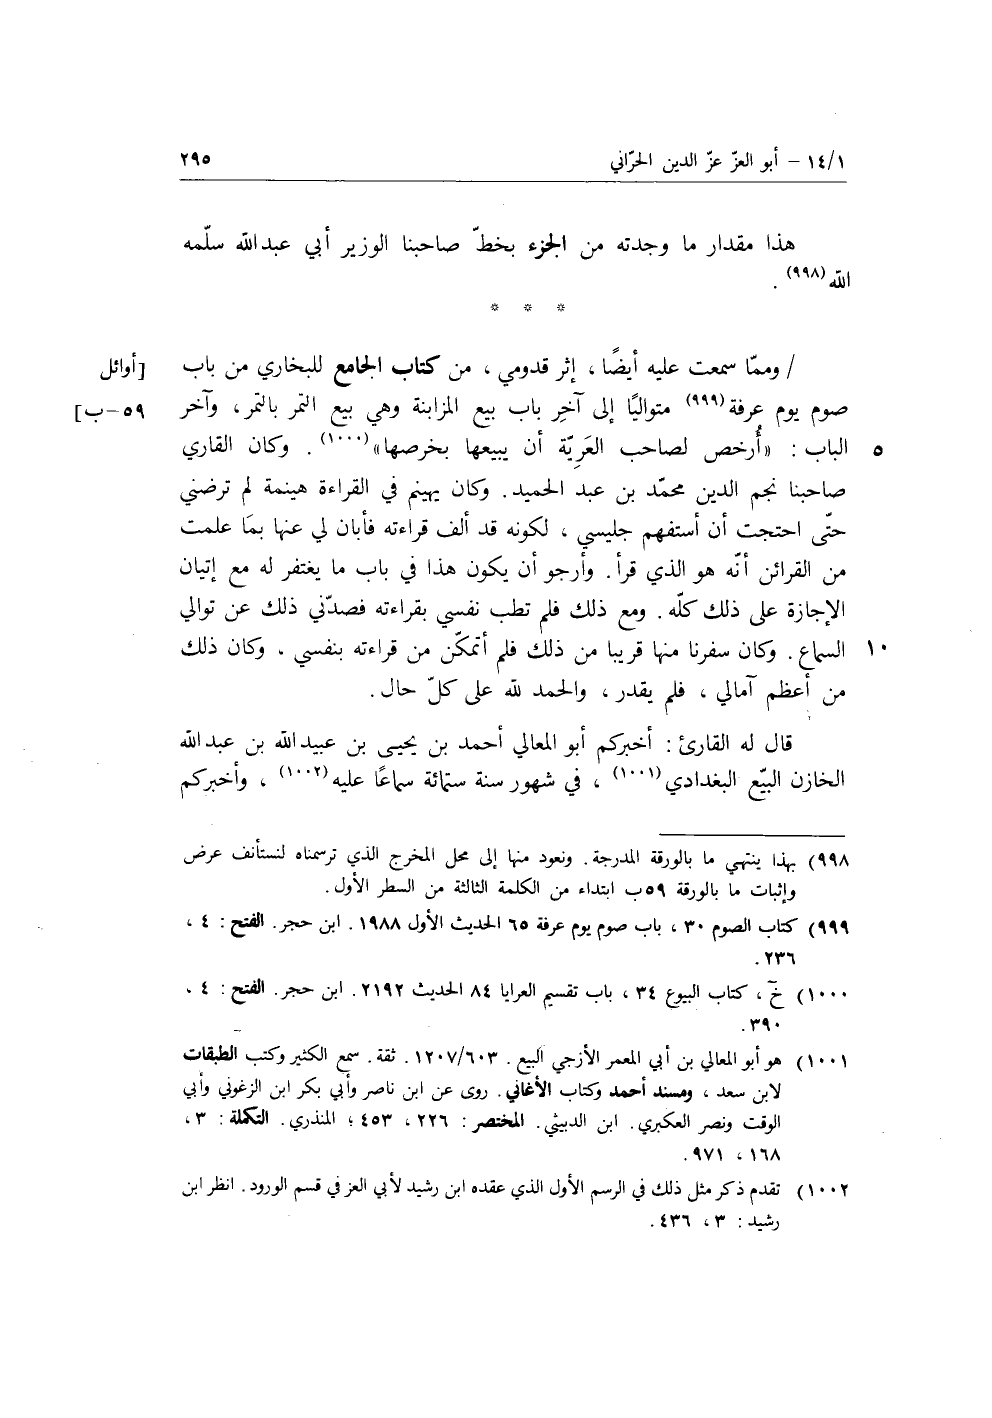 ١٤/١ – أبو العزّ عزّ الدين الحرّاني ٢٩٥
هذا مقدار ما وجدته من الجزء بخطّ صاحبنا الوزير أبي عبدالله سلّمه
الله (٩٩٨) .
* * *
/ وممّا سمعت عليه أيضًا ، إثر قدومي ، من كتاب الجامع للبخاري من باب [أوائل
صوم يوم عرفة (٩٩٩) متواليًا إلى آخِر باب بيع المزابنة وهي بيع الثمر بالتمر ، وآخر ٥٩-ب]
الباب : «أُرخص لصاحب العَرِيّة أن يبيعها بخرصها» (١٠٠٠) . وكان القاري ٥
صاحبنا نجم الدين محمّد بن عبد الحميد . وكان يهينم في القراءة هينمة لم ترضني
حتّى احتجت أن أستفهم جليسي ، لكونه قد ألف قراءته فأبان لي عنها بمَا علمت
من القرائن أنّه هو الذي قرأ . وأرجو أن يكون هذا في باب ما يغتفر له مع إتيان
الإجازة على ذلك كلّه . ومع ذلك فلم تطب نفسي بقراءته فصدّني ذلك عن توالي
السماع . وكان سفرنا منها قريبا من ذلك فلم أتمكّن من قراءته بنفسي . وكان ذلك ١٠
من أعظم آمالي ، فلم يقدر ، والحمد لله على كلّ حال .
قال له القارئ : أخبركم أبو المعالي أحمد بن يحيى بن عبيدالله بن عبدالله
الخازن البيّع البغدادي (١٠٠١) ، في شهور سنة ستمائة سماعًا عليه (١٠٠٢) ، وأخبركم
٩٩٨) بهذا ينتهي ما بالورقة المدرجة . ونعود منها إلى محل المخرج الذي ترسمناه لنستأنف عرض
وإثبات ما بالورقة ٥٩ب ابتداء من الكلمة الثالثة من السطر الأول .
٩٩٩) كتاب الصوم ٣٠ ، باب صوم يوم عرفة ٦٥ الحديث الأول ١٩٨٨ . ابن حجر . الفتح : ٤ ،
٢٣٦ .
١٠٠٠) خَ ، كتاب البيوع ٣٤ ، باب تقسيم العرايا ٨٤ الحديث ٢١٩٢ . ابن حجر . الفتح : ٤ .
٣٩٠ .
١٠٠١) هو أبو المعالي بن أبي المعمر الأزجي البيع . ١٢٠٧/٦٠٣ . ثقة . سمع الكثير وكتب الطبقات
لابن سعد ، ومسند أحمد وكتاب الأغاني . روى عن ابن ناصر وأبي بكر ابن الزغوني وأبي
الوقت ونصر العكبري . ابن الدبيثي . المختصر : ٢٢٦ ، ٤٥٣ ؛ المنذري . التكملة : ٣ ،
١٦٨ ، ٩٧١ .
١٠٠٢) تقدم ذكر مثل ذلك في الرسم الأول الذي عقده ابن رشيد لأبي العز في قسم الورود . انظر ابن
رشيد : ٣ ، ٤٣٦ .